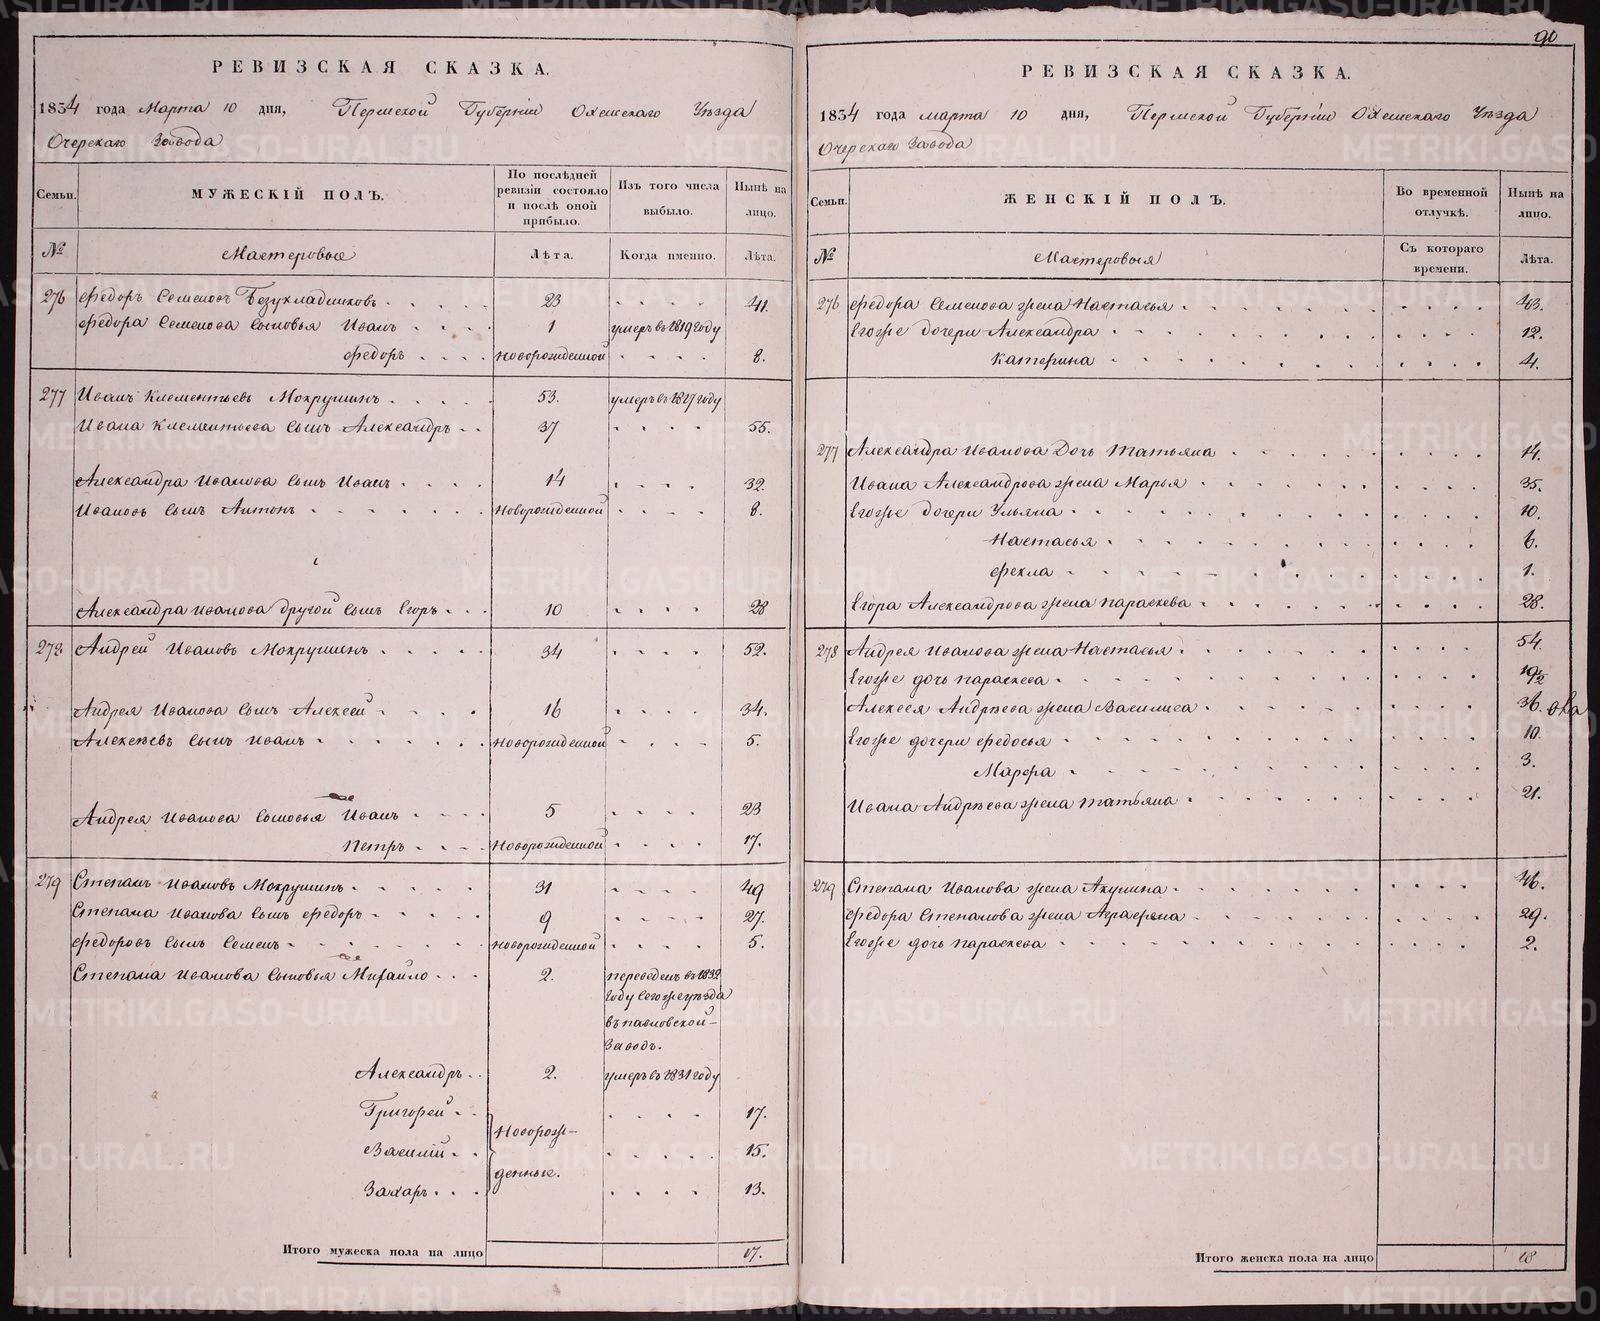 РЕВИЗСКАЯ СКАЗКА.
1834 года Марта 10 дня, Пермской Губерніи Оханскаго Уѣзда
Очерскаго Завода
Семьи.
МУЖЕСКІЙ ПОЛЪ.
По послѣдней ревизіи состояло и послѣ оной прибыло.
Изъ того числа выбыло.
Нынѣ на лицо.
№
Мастеровые
Лѣта.
Когда именно.
Лѣта.
276 Федоръ Семеновъ Безукладниковъ 23 41.
Федора Семенова сыновья Иванъ 1 умеръ въ 1819 году
Федоръ новорожденной 8.
277 Иванъ Клементьевъ Мокрушинъ 53. умеръ въ 1827 году
Ивана Клементьева сынъ Александръ 37 55.
Александра Иванова сынъ Иванъ 14 32.
Ивановъ сынъ Антонъ новорожденной 8.
Александра Иванова другой сынъ Егоръ 10 28
278 Андрей Ивановъ Мокрушинъ 34 52.
Андрея Иванова сынъ Алексей 16 34.
Алексѣевъ сынъ Иванъ новорожденной 5.
Андрея Иванова сыновья Иванъ 5 23
Петръ новорожденной 17.
279 Степанъ Ивановъ Мокрушинъ 31 49
Степана Иванова сынъ Федоръ 9 27.
Федоровъ сынъ Семенъ новорожденной 5.
Степана Иванова сыновья Михайло 2. переведенъ въ 1832
году сегоже уѣзда
въ павловской
заводъ.
Александръ 2. умеръ въ 1831 году
Григорей 17.
Новорож-
Василій 15.
денные.
Захаръ 13.
Итого мужеска пола на лицо 17.
90
РЕВИЗСКАЯ СКАЗКА.
1834 года марта 10 дня, Пермской Губерніи Оханскаго Уѣзда
Очерскаго Завода
Семьи.
ЖЕНСКІЙ ПОЛЪ.
Во временной отлучкѣ.
Нынѣ на лицо.
№
Мастеровыя
Съ котораго времени.
Лѣта.
276 Федора Семенова жена Настасья 43.
Егоже дочери Александра 12.
Катерина 4.
277 Александра Иванова дочь Татьяна 14.
Ивана Александрова жена Марья 35.
Егоже дочери Ульяна 10.
Настасья 6.
Фекла 1.
Егора Александрова жена Параскева 28.
278 Андрея Иванова жена Настасья 54.
Егоже дочь Параскева
Алексея Андрѣева жена Василиса 36.
Егоже дочери Федосья 10
Марфа 3.
Ивана Андрѣева жена Татьяна 21.
279 Степана Иванова жена Акулина 46.
Федора Степанова жена Аграфена 29.
Егоже дочь Параскева 2.
Итого женска пола на лицо 18
METRIKI.GASO-URAL.RU